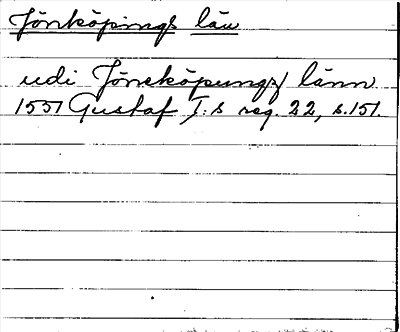 Jönköpings län
udi Jöneköpungx länn
1551 Gustaf I:s reg. 22, s.151.